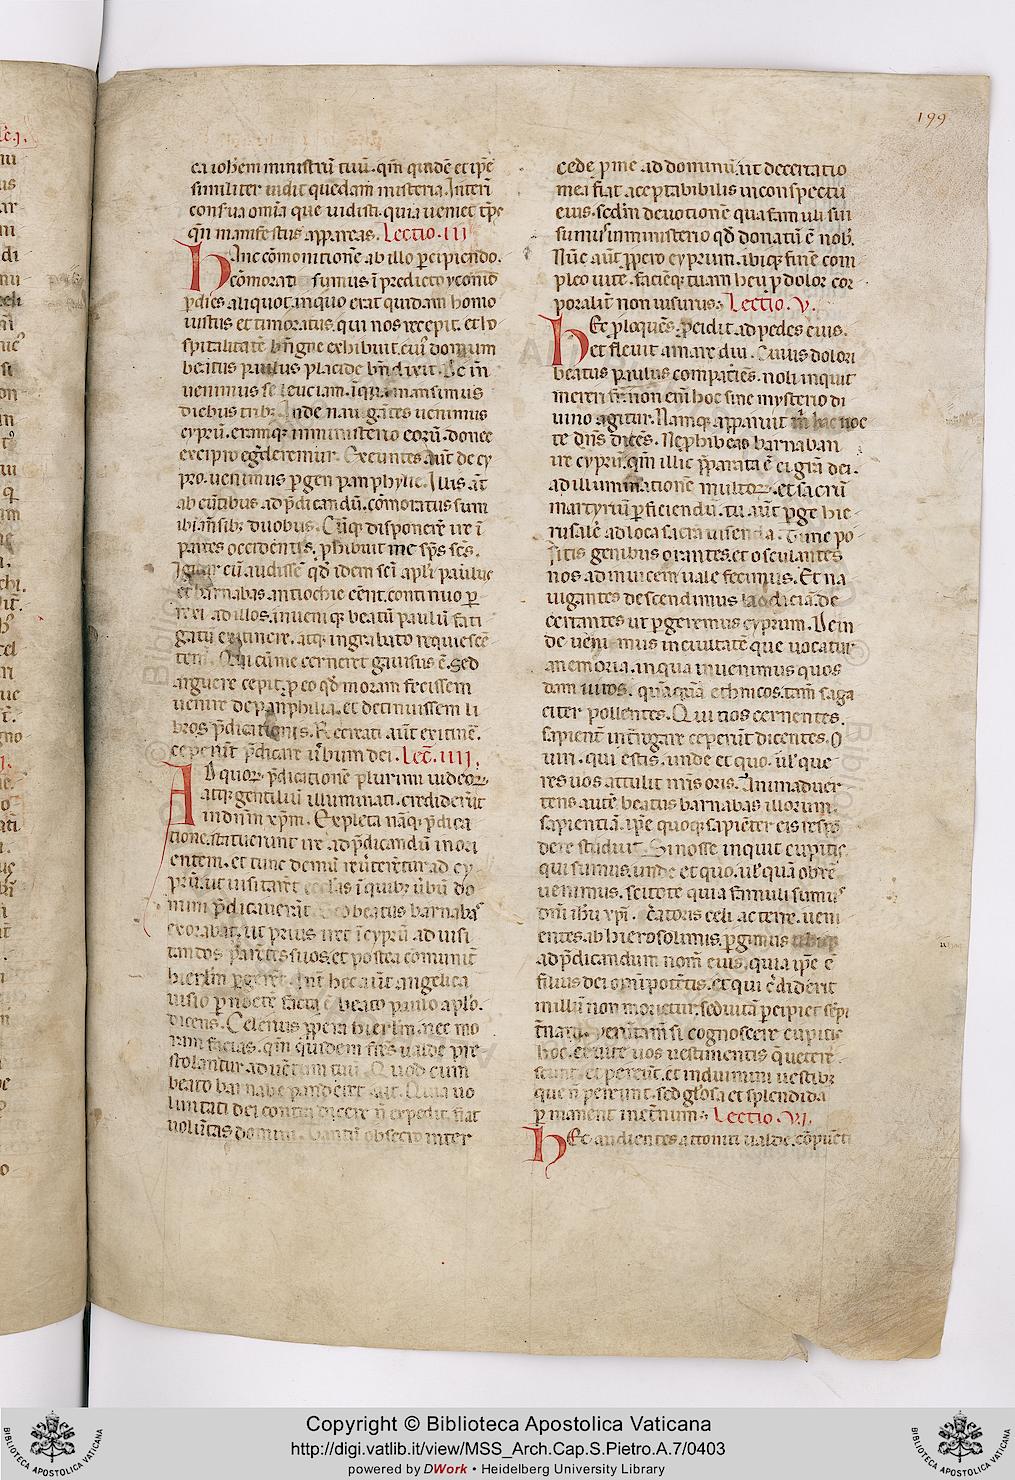 199
ca ioħem ministrũ tuũ. qm̃ quidẽ et ip̃e
similiter uidit quedam misteria. Interi
con sua omĩa que uidisti. quia ueniet tp̃r
qñ manifestus appareas. Lectio. III
Hanc cõmonitionẽ ab illo p̱cipiendo.
cõmorati sumus ĩ predicto yconio
p̱ dies aliquot. in quo erat quidam homo
iustus et timoratus. qui nos recepit. et ho
spitalitatẽ b̃nigne exhibuit. cui᾽ domum
beatus paulus placide bñdixit. De ĩn
uenimus seleuciam. ĩ qua mansimus
diebus trib;. Inde nauigãtes uenimus
cyprũ. eramq; in ministerio eorũ. donec
excipio eg̃deremur. Exeuntes aũt de cy
pro. uenimus p̱gen pamphylie. Illis aũt
ab eũtibus ad p̃dicandũ. cõmoratus sum
ibi m̃sib; duobus. Cũq; disponerẽ ire ĩ
partes occidentis. p̱hibuit me sp̃s sc̃s.
Igitur cũ audissẽ qđ idem sc̃i apl̃i paulus
et barnabas antiochie eẽnt. continuo p̱
rexi ad illos. inueniq; beatũ paulũ fati
gatũ ex itinere. atq; in grabato requiescẽ
tem. Qui cũ me cerneret gauisus ẽ. Sed
arguere cepit. p̱ eo qđ moram fecissem
uenire de panphilia. et detinuissem li
bros p̃dicationis. Recreati aũt ex itinẽ.
ceperũt p̃dicare ũbum dei. Lec̃. IIII.
Ad quor; p̃dicationẽ plurimi uideor;
atq; gentiliũ illuminati. crediderũt
in dñm xp̃m. Expleta nãq; p̃dica
tione. statuerunt ire ad p̃dicandũ in ori
entem. et tunc demũ reũterẽtur ad cy
prũ. ut uisitarẽt ecclas ĩ quib; ũbũ do
mini p̃dicauerãt. beatus barnabas
exorabat. ut prius iret ĩ cyprũ ad uisi
tandos parẽtes suos. et postea comunit̃
hierlm p̱gerẽt. hec aũt angelica
uisio p̱ noctẽ facta ẽ beato paulo apl̃o.
dicens. Celerius p̱pera hierlm. nec mo
ram facias. qm̃ quidem fr̃es ualde pre
stolantur aduẽtum tuũ. Quod cum
beato barnabe panderet. ait. Quia uo
luntati dei contra dicere ñ expedit. fiat
uolũtas domini. Tantũ obsecro inter
cede p̱ me ad dominũ. ut decertatio
mea fiat aceptabibilis in conspectu
eius. sedm̃ deuotionẽ qua famuli sui
sumus᾽ in ministerio qđ donatũ ẽ nob̃.
Nũc aũt p̱pero cyprum. ibiq; finẽ com
pleo uite. faciẽq; tuam heu p̱ dolor cor
poralit̃ non uisurus. Lectio. V.
Hec p̱loquẽs. p̱cidit ad pedes eius.
et fleuit amare diu. Cuius dolori
beatus paulus compaciẽs. noli inquit
mereri fr̃. non em̃ hoc sine mysterio di
uino agitur. Namq; apparuit m̃ hac noc
te dñs dicẽs. Ne p̱hibeas barnaban
ire cyprũ. qm̃ illic p̱parata ẽ ei gr̃a dei.
ad illuminationẽ multor;. et sacrũ
martyriũ p̱ficiendũ. tu aũt p̱ge hie-
rusalẽ ad loca sacra uisenda. Tunc po-
sitis genibus orantes. et osculantes
nos ad inuicem uale fecimus. Et na
uigantes descendimus laodiciã. de
certantes ut p̱geremus cyprum. Dein
de uenimus in ciuitatẽ que uocatur
anemoria. in qua inuenimus quos
dam uiros. quãquã ethnicos. tam̃ saga
citer pollentes. Qui nos cernentes.
sapient̃ int̃rogare ceperũt dicentes. O
uiri. qui estis. unde et quo. ũl que
res uos attulit nr̃is oris. Animaduer
tens autẽ beatus barnabas illorum
sapientiã. ip̃e quoq; sapiẽter eis respõ
dere studuit. Si nosse inquit cupitis
qui sumus. unde et quo. ũl quã obrẽ
uenimus. scitote quia famuli sumus᾽
dñi ihũ xp̃i. creatoris celi ac terre. ueni
entes ab hierosolimis. p̱gimus ubiq;
ad p̃dicandum nom̃ eius. quia ip̃e ẽ
filius dei omĩpotẽtis. et qui c̃diderit
in illũ non morietur. sed uitã p̱cipiet sẽpi
t̃nam. Verũtam̃ si cognoscere cupitis
hoc. et aũte uos uestimentis que ueterẽ
scunt. et pereũt. et induimini uestib;
que ñ pereunt. sed gl̃osa et splendida
p̱manent in et̃num. Lectio. VI.
Hec audientes attoniti ualde. cõpũcti
Copyright © Biblioteca Apostolica Vaticana
http://digi.vatlib.it/view/MSS_Arch.Cap.S.Pietro.A.7/0403
powered by DWork • Heidelberg University Library
BIBLIOTECA APOSTOLICA VATICANA
BIBLIOTECA APOSTOLICA VATICANA